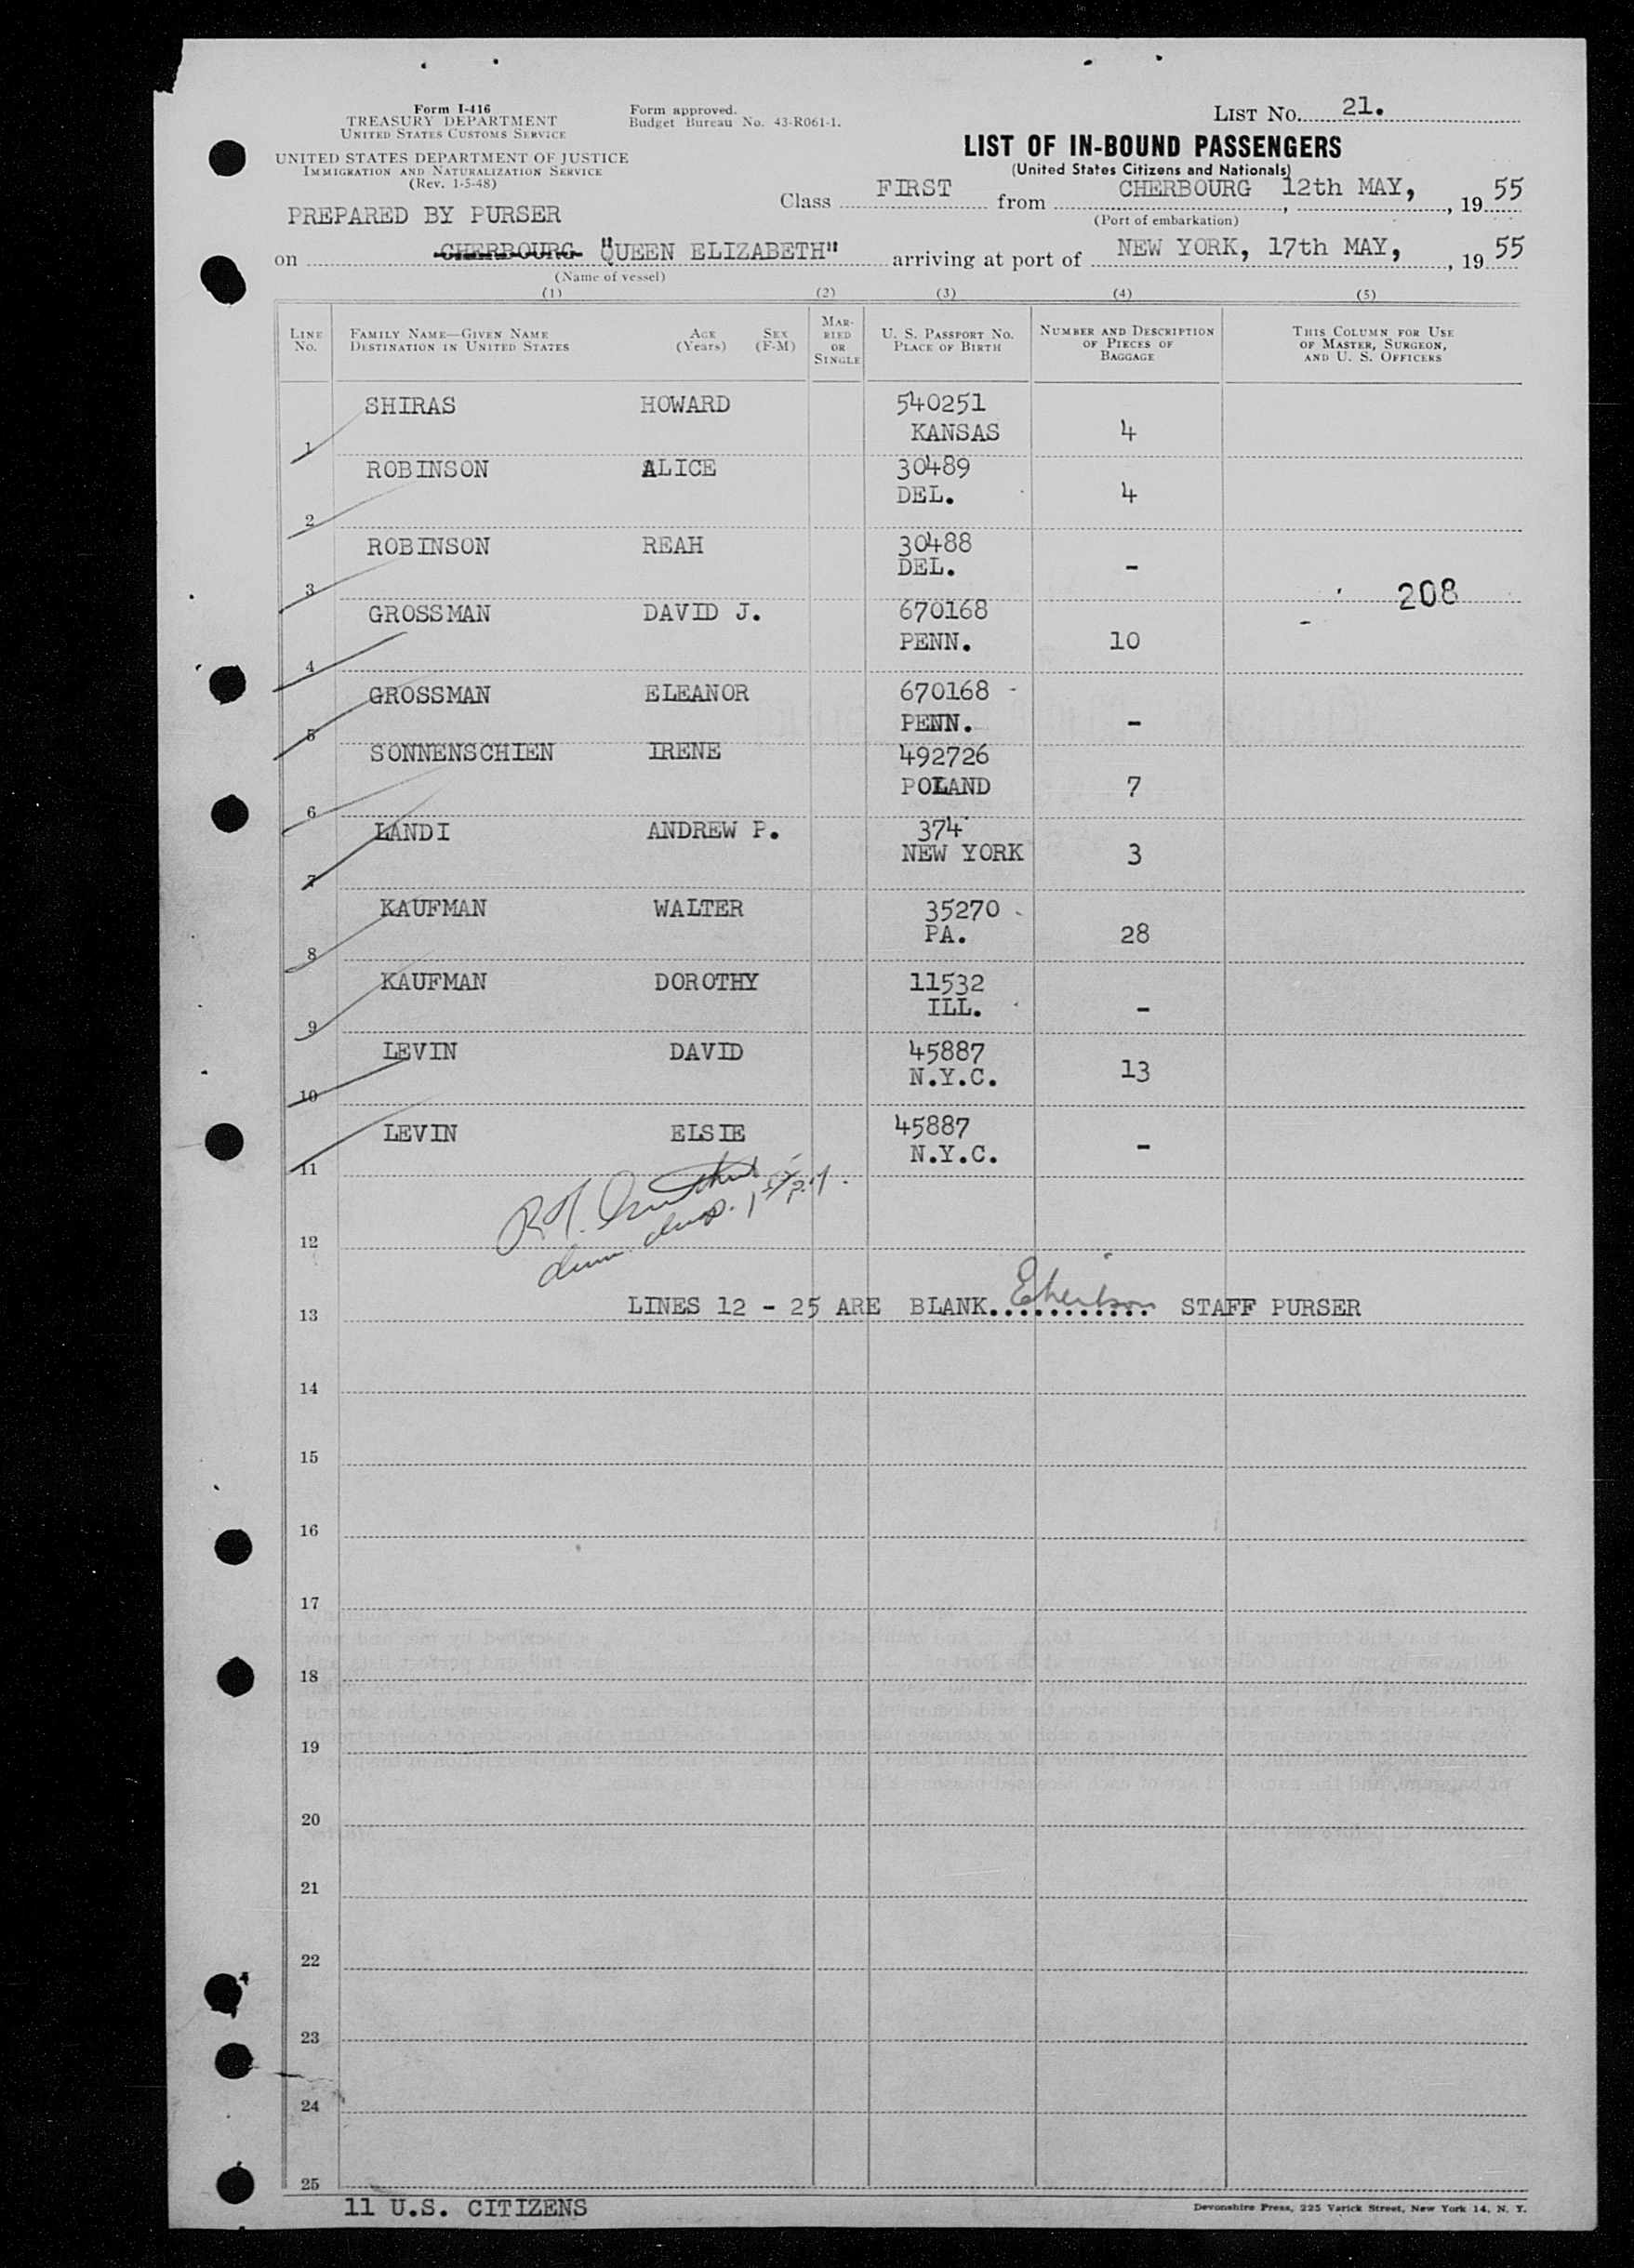 Form I-416
TREASURY DEPARTMENT
UNITED STATES CUSTOMS SERVICE
UNITED STATES DEPARTMENT OF JUSTICE
IMMIGRATION AND NATURALIZATION SERVICE
(Rev. 1-5-48)
Form approved.
Budget Bureau No. 43-R061-1.
LIST No. 21.
LIST OF IN-BOUND PASSENGERS
(United States Citizens and Nationals)
Class FIRST from CHERBOURG 12th MAY, , 19 55
(Port of embarkation)
PREPARED BY PURSER
on CHERBOURG "QUEEN ELIZABETH" arriving at port of NEW YORK, 17th MAY, , 19 55
(Name of vessel)
(1) (2) (3) (4) (5)
LINE No. FAMILY NAME—GIVEN NAME DESTINATION IN UNITED STATES AGE (Years) SEX (F-M) MARRIED OR SINGLE U. S. PASSPORT NO. PLACE OF BIRTH NUMBER AND DESCRIPTION OF PIECES OF BAGGAGE THIS COLUMN FOR USE OF MASTER, SURGEON, AND U. S. OFFICERS
SHIRAS HOWARD 540251
1 KANSAS 4
ROBINSON ALICE 30489
2 DEL. 4
ROBINSON REAH 30488
3 DEL. -
208
GROSSMAN DAVID J. 670168
4 PENN. 10
GROSSMAN ELEANOR 670168 -
5 PENN. -
SONNENSCHIEN IRENE 492726
6 POLAND 7
LANDI ANDREW P. 374
7 NEW YORK 3
KAUFMAN WALTER 35270
8 PA. 28
KAUFMAN DOROTHY 11532
9 ILL. -
LEVIN DAVID 45887
10 N.Y.C. 13
LEVIN ELSIE 45887
11 N.Y.C. -
12
13 LINES 12 - 25 ARE BLANK............ STAFF PURSER
14
15
16
17
18
19
20
21
22
23
24
25
11 U.S. CITIZENS
Devonshire Press, 225 Varick Street, New York 14, N. Y.